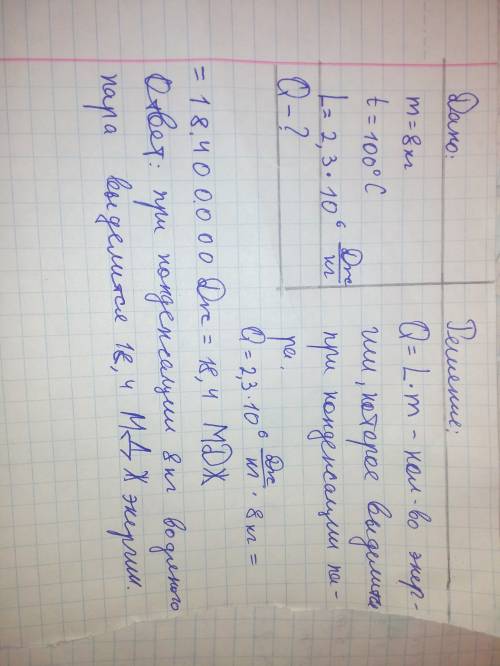 Дано:
m = 8 кг
t = 100°C
L = 2,3 · 10⁶ Дж/кг
Q - ?
Решение:
Q = L · m - кол-во энер-
гии, которое выделится
при конденсации па-
ра.
Q = 2,3 · 10⁶ Дж/кг · 8 кг =
= 18.400.000 Дж = 18,4 МДж
Ответ: при конденсации 8 кг водяного
пара выделится 18,4 МДж энергии.